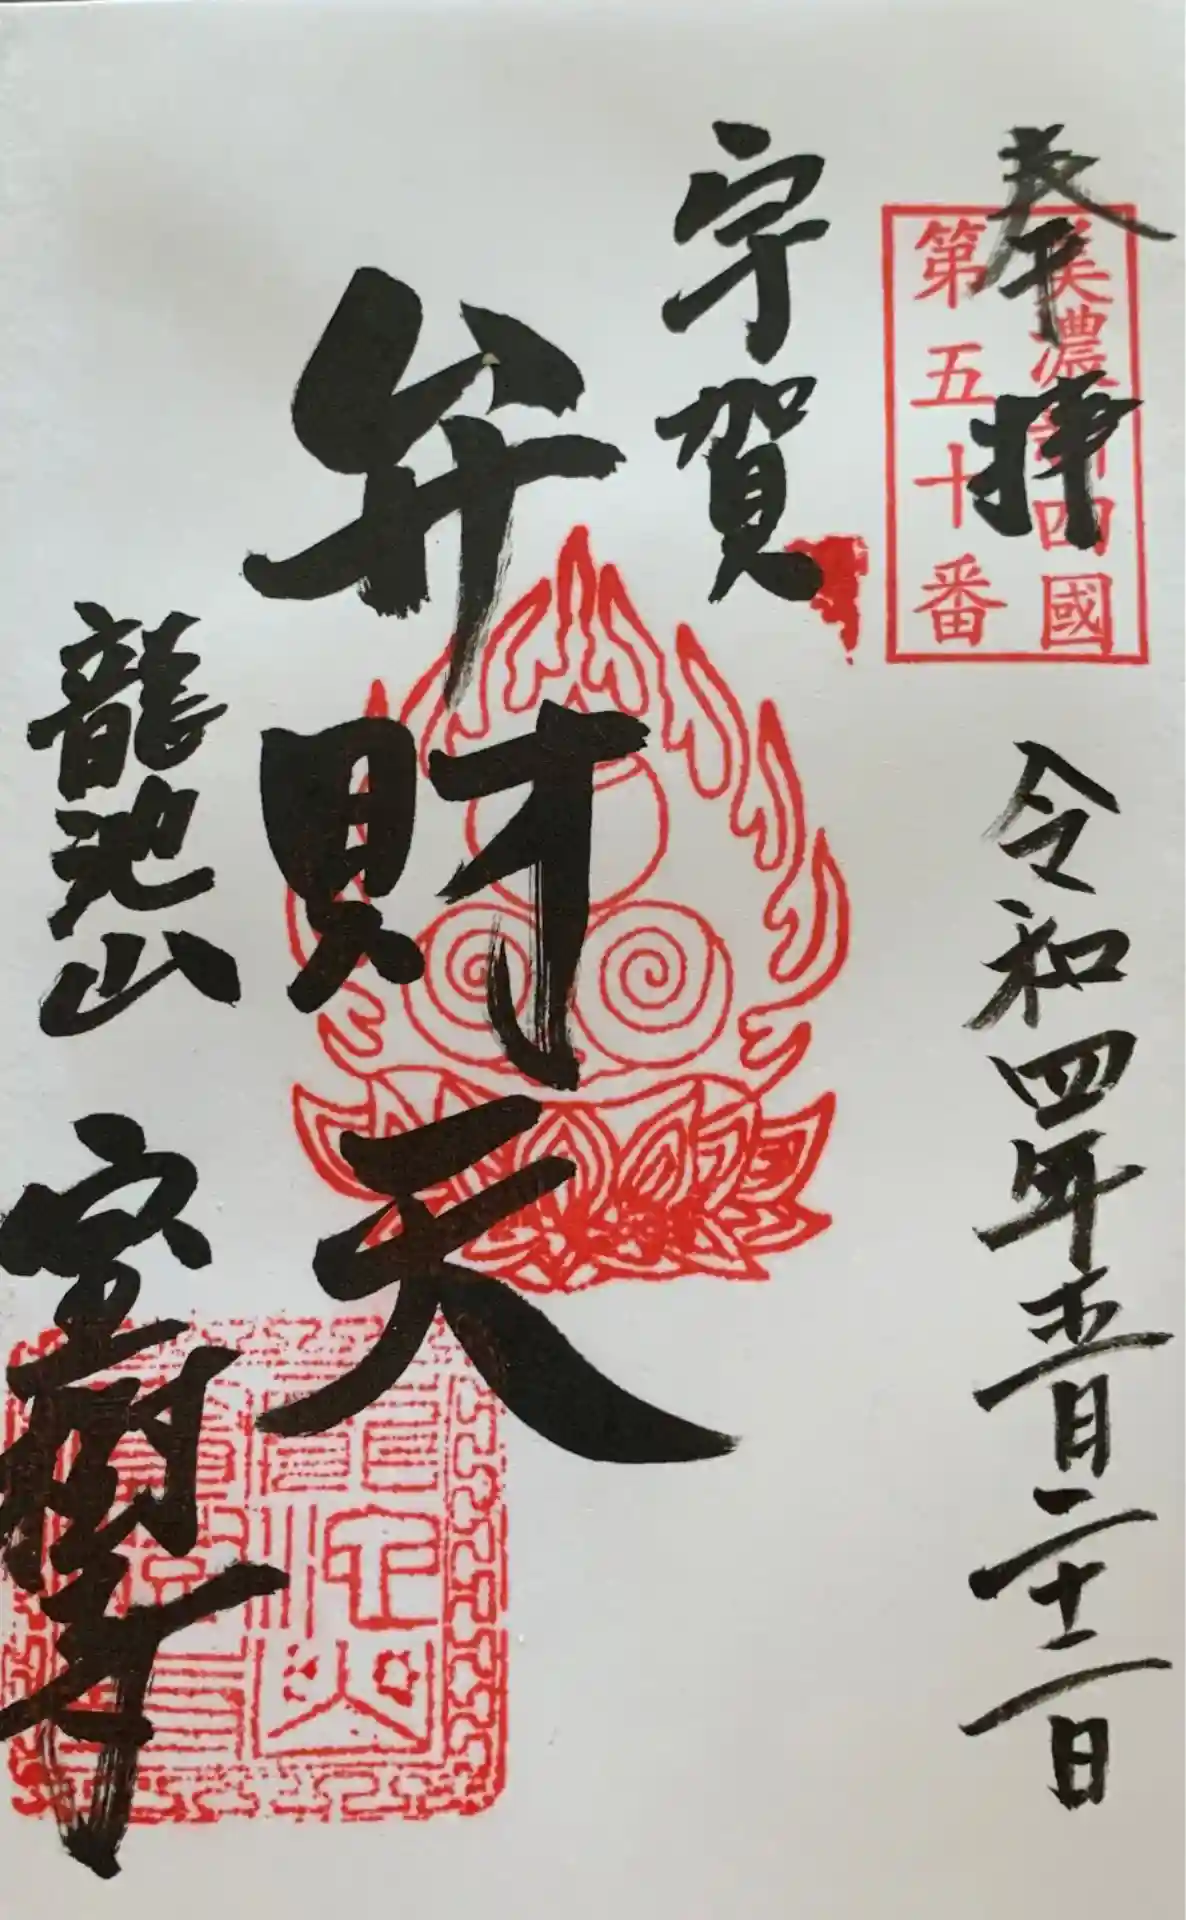 奉拝
美濃新四國
第五十番
令和四年五月二十二日
宇賀
弁財天
龍池山 宝樹寺